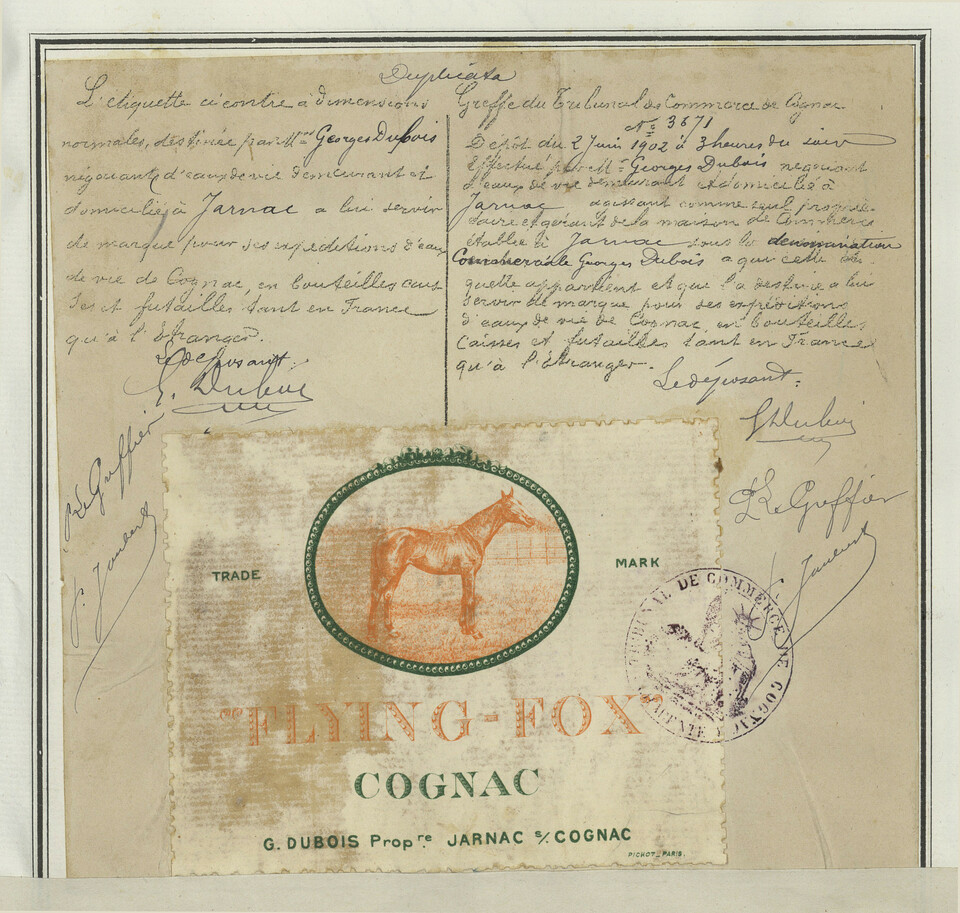 Duplicata
L'étiquette ci contre à dimensions
normales, destinée par Mr Georges Dubois
négociant d'eaux de vie demeurant et
domicilié à Jarnac a lui servir
de marque pour ses expéditions d'eaux
de vie de Cognac, en bouteilles cais
ses et futailles tant en France
qu'à l'étranger.
Le déposant:
G. Dubois
Greffe du Tribunal de Commerce de Cognac
No 3671
Dépôt du 2 Juin 1902 à 3 heures du soir
Effectué par Mr Georges Dubois négociant
d'eaux de vie demeurant et domicilié à
Jarnac agissant comme seul proprié-
taire et gérant de la maison de Commerce
établie à Jarnac sous la dénomination
Commerciale Georges Dubois a qui cette éti-
quette appartient et que l'a destinée a lui
servir de marque pour ses expéditions
d'eaux de vie de Cognac, en bouteilles
caisses et futailles tant en France
qu'à l'étranger.
Le déposant:
G Dubois
Le Greffier
Le Greffier
TRADE
MARK
TRIBUNAL DE COMMERCE DE COGNAC
"FLYING-FOX"
COGNAC
G. DUBOIS Propre. JARNAC s/ COGNAC
PICHOT_PARIS.